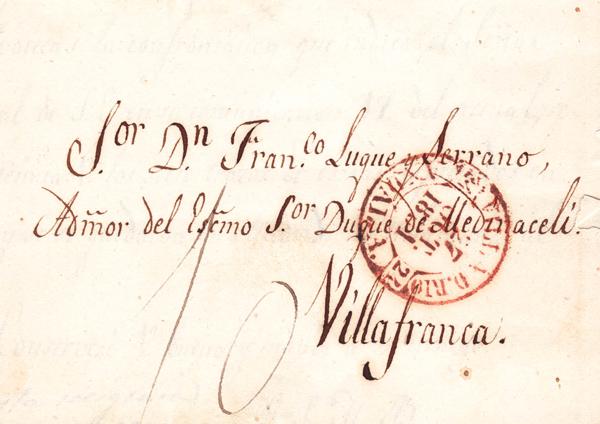 S.or D.n Fran.co Luque y Serrano,
Adm̃or del Escm̃o S.or Duque de Medinaceli.
Villafranca.